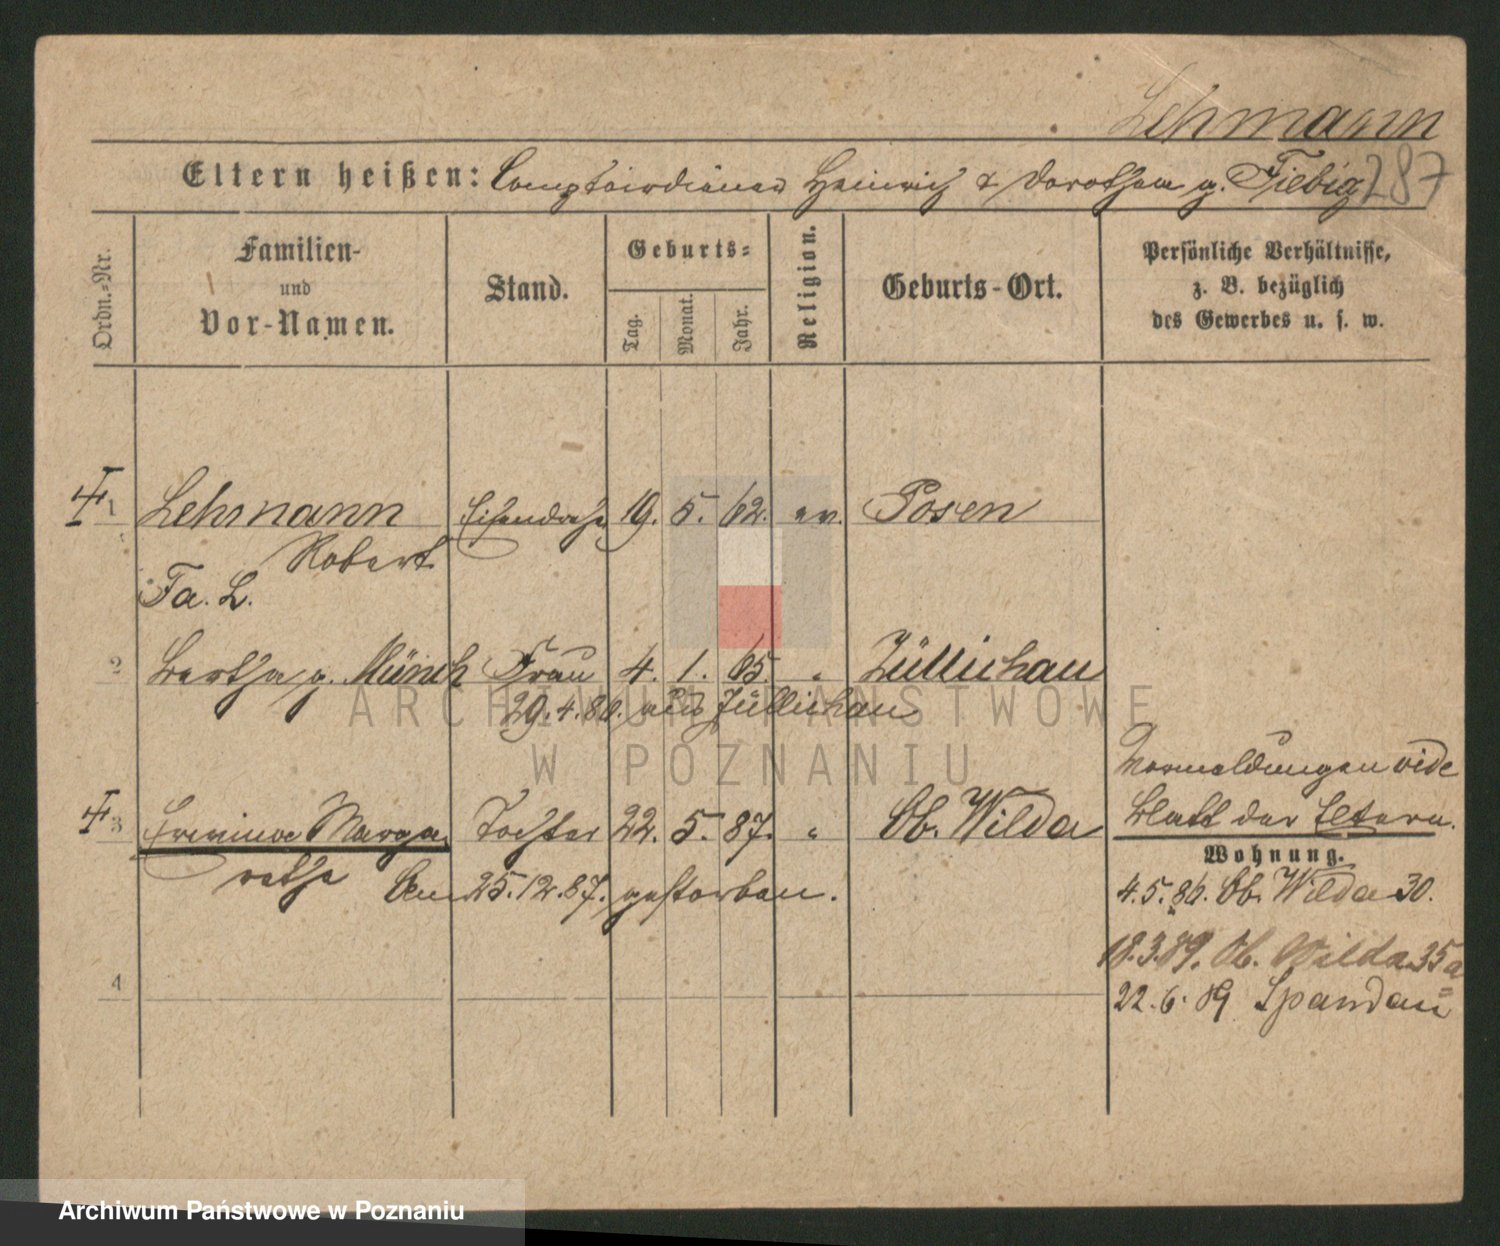 Lehmann
Eltern heißen: Comptoirdiener Heinrich & Dorothea g. Fiebig 287
Ordn.-Nr.
Familien-
und
Vor-Namen.
Stand.
Geburts-
Tag.
Monat.
Jahr.
Religion.
Geburts-Ort.
Persönliche Verhältnisse,
z. B. bezüglich
des Gewerbes u. s. w.
1 Lehmann Eisendreher 19. 5. 62. ev. Posen
Robert
Fa. L.
2 Bertha g. Münch Frau 4. 1. 65. " Züllichau
29. 4. 86. aus Züllichau
ARCHIWUM PAŃSTWOWE
W POZNANIU
Vormeldungen vide
Blatt der Eltern.
3 Marga Tochter 22. 5. 87. " Ob. Wilda
rethe Am 25.12.87. gestorben.
Wohnung.
4.5.86. Ob. Wilda 30.
18.3.89. Ob. Wilda 35a
4
22.6.89 Spandau
Archiwum Państwowe w Poznaniu